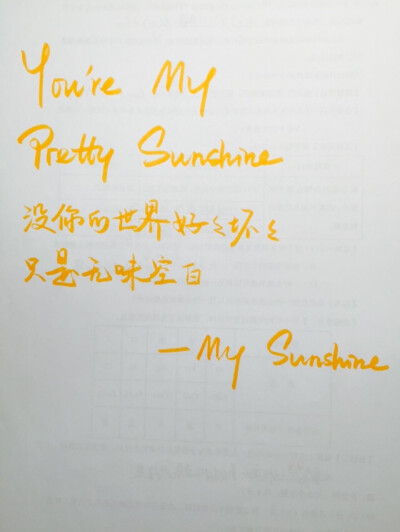 You're My
Pretty Sunshine
没你的世界好〻坏〻
只是无味空白
—My Sunshine